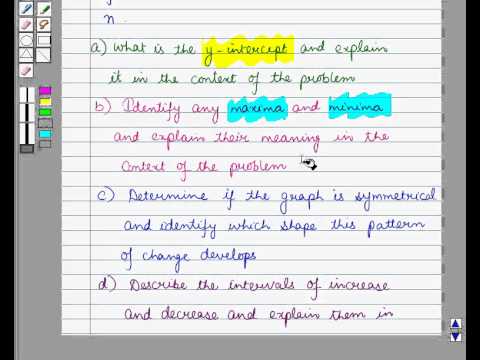 n.
a) What is the y-intercept and explain
it in the context of the problem
b) Identify any maxima and minima
and explain their meaning in the
context of the problem
c) Determine if the graph is symmetrical
and identify which shape this pattern
of change develops
d) Describe the intervals of increase
and decrease and explain them in